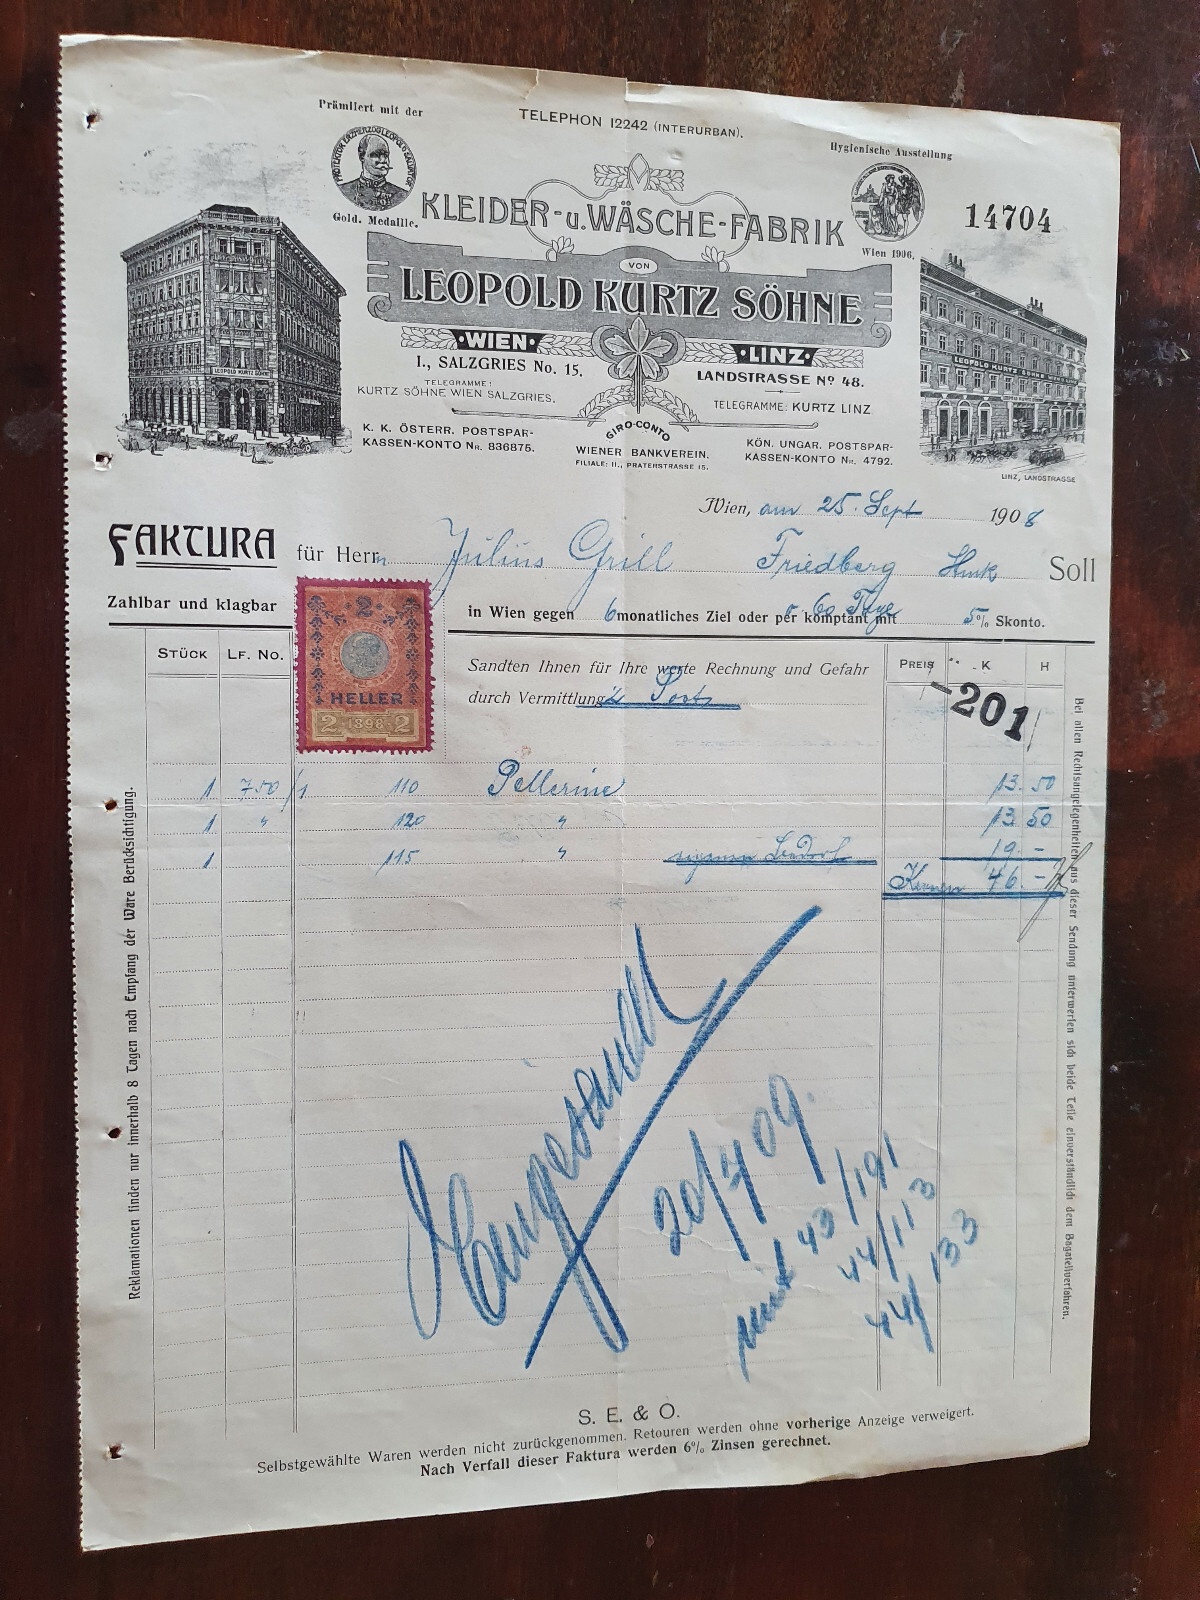 Prämiiert mit der
TELEPHON 12242 (INTERURBAN).
Hygienische Ausstellung
PROTEKTOR ERZHERZOG LEOPOLD SALVATOR
Gold. Medaille.
KLEIDER- u. WÄSCHE-FABRIK
14704
Wien 1906.
VON
LEOPOLD KURTZ SÖHNE
LEOPOLD KURTZ SÖHNE
LEOPOLD KURTZ SÖHNE
·WIEN·
·LINZ·
I., SALZGRIES No. 15.
LANDSTRASSE No 48.
TELEGRAMME:
KURTZ SÖHNE WIEN SALZGRIES.
TELEGRAMME: KURTZ LINZ
K. K. ÖSTERR. POSTSPAR-
KASSEN-KONTO NR. 836875.
GIRO-CONTO
WIENER BANKVEREIN.
FILIALE: II., PRATERSTRASSE 15.
KÖN. UNGAR. POSTSPAR-
KASSEN-KONTO NR. 4792.
LINZ, LANDSTRASSE
Wien, am 25. Sept 1908
FAKTURA für Herrn Julius Grill Friedberg Soll
Zahlbar und klagbar in Wien gegen 6 monatliches Ziel oder per komptant mit 60 Tage 5% Skonto.
2
HELLER
2 1898 2
STÜCK LF. No. PREIS K H
Sandten Ihnen für Ihre werte Rechnung und Gefahr
durch Vermittlung
-201
1 750/1 110 Pellerine 13.50
1 " 120 " 13.50
1 115 " 19.-
46.-
20/7 09.
43/191
44/113
44/133
Reklamationen finden nur innerhalb 8 Tagen nach Empfang der Ware Berücksichtigung.
Bei allen Rechtsangelegenheiten aus dieser Sendung unterwerfen sich beide Teile einverständlich dem Bagatellverfahren.
S. E. & O.
Selbstgewählte Waren werden nicht zurückgenommen. Retouren werden ohne vorherige Anzeige verweigert.
Nach Verfall dieser Faktura werden 6% Zinsen gerechnet.